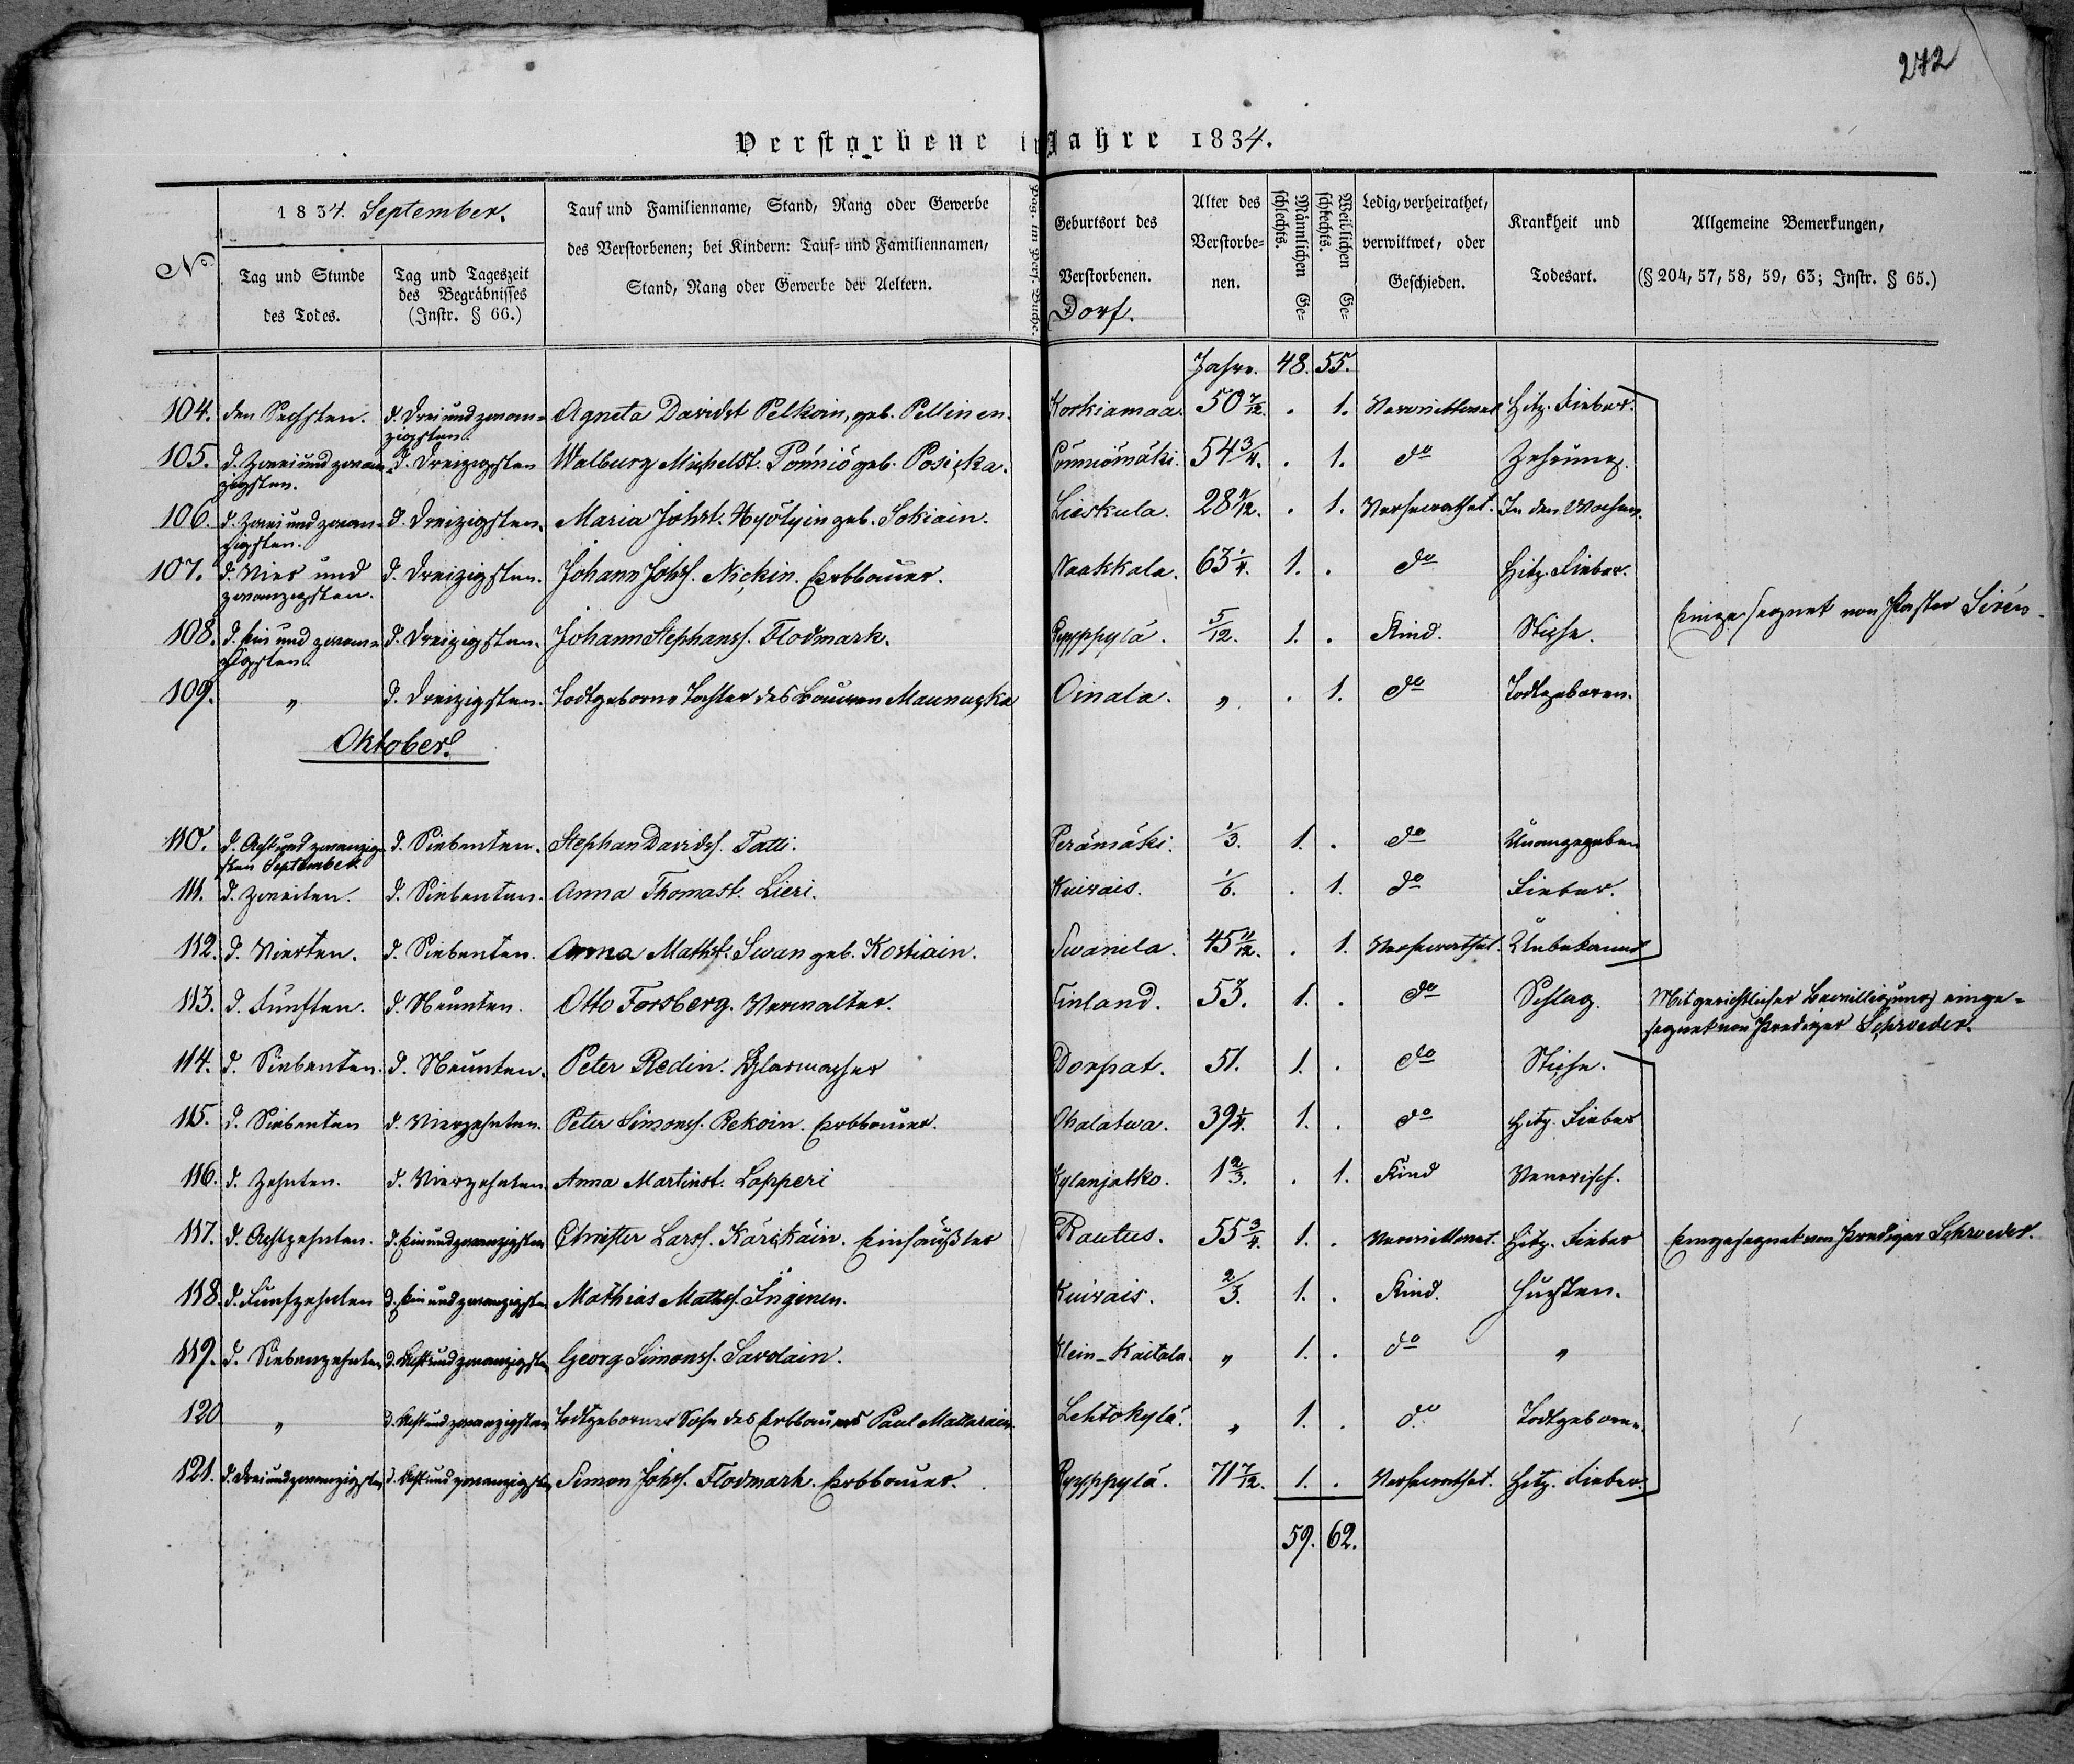 272
Verstorbene im Jahre 1834.
No
1834. September.
Tag und Stunde des Todes.
Tag und Tageszeit des Begräbnisses (Instr. § 66.)
Tauf und Familienname, Stand, Rang oder Gewerbe des Verstorbenen; bei Kindern: Tauf- und Familiennamen, Stand, Rang oder Gewerbe der Aeltern.
Pag. im Pers. Buche.
Geburtsort des Verstorbenen.
Dorf.
Alter des Verstorbenen.
Männlichen Geschlechts.
Weiblichen Geschlechts.
Ledig, verheirathet, verwittwet, oder Geschieden.
Krankheit und Todesart.
Allgemeine Bemerkungen, (§ 204, 57, 58, 59, 63; Instr. § 65.)
Jahre. 48. 55.
104. den Sechsten. d. Dreiundzwanzigsten. Agneta Davidst Pelkoin, geb. Pellinen. Korkiamaa. 50 7/12. . 1. Verwittwet Hitz. Fieber.
105. d. Zweiundzwanzigsten. d. Dreizigsten Walburg Michelst. Pönniö geb. Posicka. Pönniömäki. 54 3/4. . 1. do Zehrung.
106. d. Zweiundzwanzigsten. d. Dreizigsten. Maria Johst. Hyötyin geb. Sokiain. Lieskula. . 1. Verheirathet. In den Wochen.
107. d. Vier und zwanzigsten. d. Dreizigsten. Johann Johss. Nickin. Erbbauer. Naakkala. 63 1/4. 1. . do Hitz. Fieber.
108. d. Ein und zwanzigsten. d. Dreizigsten. Johann Stephanss. Flodmark. Ryyppylä. 5/12. 1. . Kind. Stiche.
Eingesegnet von Pastor Sirén.
109. „ d. Dreizigsten. Todtgeborne Tochter des Bauren Maunucka Oinala. „ . 1. do Todtgeboren.
Oktober.
110. d. Acht und zwanzigsten September. d. Siebenten. Stephan Davidss. Tatti. Perämäki. 1/3. 1. . do Unangegeben
111. d. Zweiten. d. Siebenten. Anna Thomast. Lieri. Kuivais. 1/6. . 1. do Fieber.
112. d. Vierten. d. Siebenten. Anna Mathst. Swan geb. Kostiain. Swanila. 45 11/12. . 1. Verheirathet. Unbekannt
113. d. Fünften. d. Neunten. Otto Forsberg. Verwalter. Finland. 53. 1. . do Schlag. Mit gerichtlicher Bewilligung eingesegnet von Prediger Schroeder.
114. d. Siebenten. d. Neunten. Peter Redin. Glasmacher Dorpat. 51. 1. . do Stiche.
115. d. Siebenten d. Vierzehnten. Peter Simonss. Rekoin. Erbbauer. Ohalatwa. 39 1/4. 1. . do Hitz. Fieber
116. d. Zehnten. d. Vierzehnten. Anna Martinst. Lapperi Kylänjatko. 1 2/3. . 1. Kind Venerisch.
117. d. Achtzehnten. d. Einundzwanzigsten Christer Larss. Kärikäin. Einhäußler Rautus. 55 3/4. 1. . Verwittwet. Hitz. Fieber Eingesegnet von Prediger Schroeder.
118. d. Fünfzehnten d. Einundzwanzigsten Mathias Mathss. Inginen. Kuivais. 2/3. 1. . Kind. Husten.
119. d. Siebenzehnten d. Achtundzwanzigsten Georg Simonss. Savolain. Klein-Kaitala. „ 1. . do „
120 „ d. Achtundzwanzigsten Todtgeborner Sohn des Erbbauers Paul Mattarain. Lehtokylä. „ 1. . do Todtgeboren.
121. d. Dreiundzwanzigsten d. Achtundzwanzigsten Simon Johss. Flodmark. Erbbauer. Ryyppylä. 71 7/12. 1. . Verheirathet. Hitz. Fieber.
59. 62.